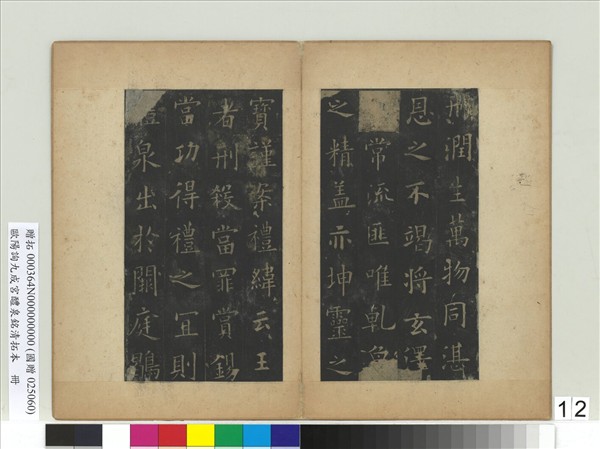 用潤生萬物同湛
恩之不竭將玄澤
常流匪唯乾象
之精盖亦坤靈之
寶謹案禮緯云王
者刑殺當罪賞錫
當功得禮之宜則
醴泉出於闕庭鶡
贈拓 000364N000000000 (國贈 025060)
歐陽詢九成宮醴泉銘清拓本 冊
12